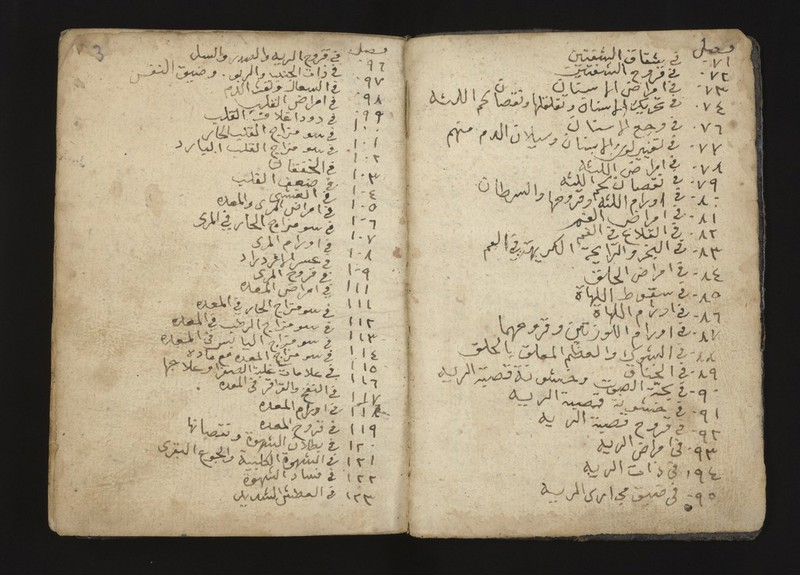 فصل
٧١ في شقاق الشفتين
٧٢ في قروح الشفتين
٧٣ في امراض الاسنان
٧٤ في تحريك الاسنان وتقلقلها ونقصان لحم اللثة
٧٦ في وجع الاسنان
٧٧ في تغيير لون الاسنان وسيلان الدم منهم
٧٨ في امراض اللثه
٧٩ في نقصان لحم اللثه
٨٠ في اورام اللثه وقروحها والسرطان
٨١ في امراض الفم
٨٢ في القلاع في الفم
٨٣ في البخر والرايحة الكريهة في الفم
٨٤ في امراض الحلق
٨٥ في سقوط اللهاة
٨٦ في اورام اللهاة
٨٧ في اورام اللوزتين وقروحهما
٨٨ في الشوك والعظم المعلق بالحلق
٨٩ في الخناق
٩٠ في بحة الصوت وخشونة قصبة الريه
٩١ في خشونة قصبة الريه
٩٢ في قروح قصبة الريه
٩٣ في امراض الريه
٩٤ في ذات الريه
٩٥ في ضيق مجارى الريه
3
فصل
٩٦ في قروح الريه والسل
٩٧ في ذات الجنب والربو وضيق النفس
٩٨ في السعال ونفث الدم
٩٩ في امراض القلب
١٠٠ في القلب
١٠١ في سو مزاج القلب الحار
١٠٢ في سو مزاج القلب البارد
في الخفقان
١٠٣ في ضعف القلب
١٠٤ في الغشى
١٠٥ في امراض المرى والمعده
١٠٦ في سو مزاج الحار في المرى
١٠٧ في اورام المرى
١٠٨ في عسر الازدراد
١٠٩ في قروح المرى
١١٠ في امراض المعده
١١١ في سو مزاج الحار في المعده
١١٢ في سو مزاج الرطب في المعده
١١٣ في سو مزاج اليابس في المعده
١١٤ في سو مزاج المعده مع ماده
١١٥ في علامات غلبة الصفرا وعلاجها
١١٦ في النفخ والقراقر في المعده
١١٧ في اورام المعده
١١٩ في قروح المعده
١٢٠ في بطلان الشهوة ونقصانها
١٢١ في الشهوة الكلبية والجوع البقرى
١٢٢ في فساد الشهوة
١٢٣ في العطش الشديد